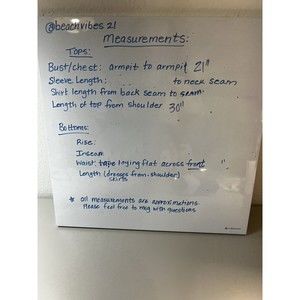 @beachvibes21
Measurements:
Tops:
Bust/chest: armpit to armpit 21"
Sleeve Length: to neck seam
Shirt length from back seam to seam
Length of top from shoulder 30"
Bottoms:
Rise:
Inseam
Waist tape laying flat across front "
Length (dresses from shoulder)
skirts
* all measurements are approximations
Please feel free to msg with questions